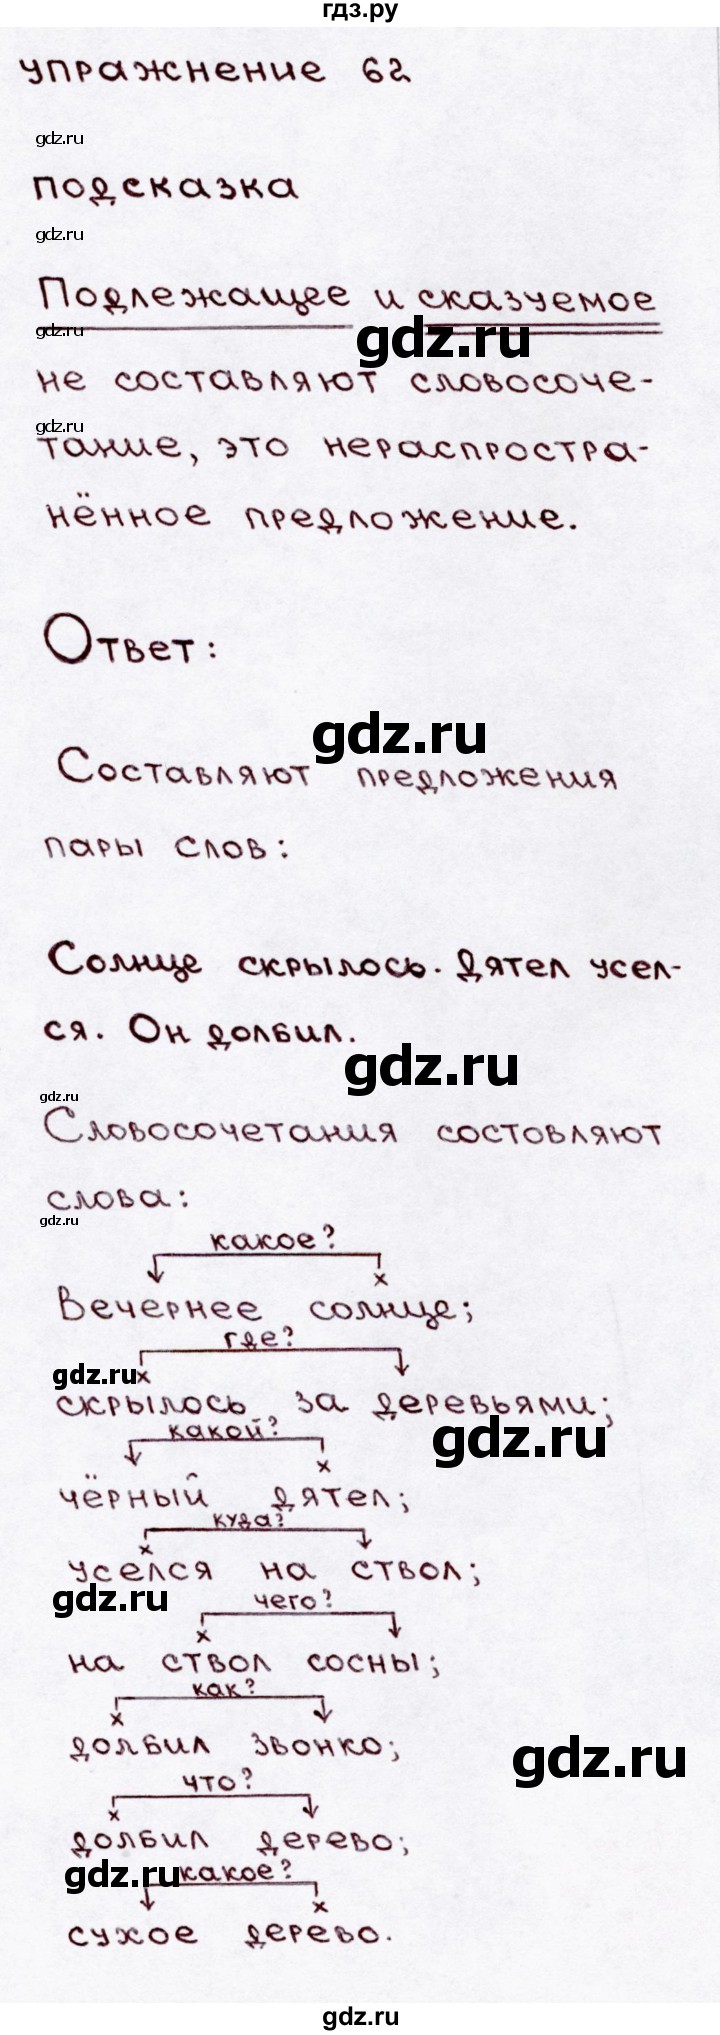 гдз.ру
упражнение 62
gdz.ru
подсказка
gdz.ru
Подлежащее и сказуемое
gdz.ru
gdz.ru
не составляют словосоче-
gdz.ru
тание, это нераспростра-
нённое предложение.
Ответ:
gdz.ru
Составляют предложения
пары слов:
Солнце скрылось. Дятел усел-
ся. Он долбил.
gdz.ru
gdz.ru
Словосочетания состовляют
слова:
gdz.ru
какое?
х
Вечернее солнце;
где?
gdz.ru х
скрылось за деревьями;
gdz.ru
какой?
х
чёрный дятел;
куда?
х
уселся на ствол;
gdz.ru
чего?
х
на ствол сосны;
как?
х
долбил звонко;
gdz.ru
что?
х
долбил дерево;
gdz.ru
какое?
х
сухое дерево.
gdz.ru